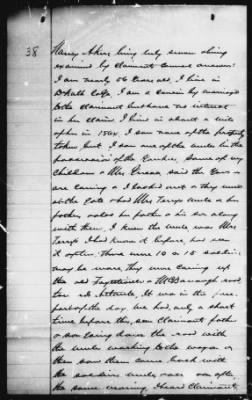 38
Nancy Akers being duly sworn & being
examined by claimants counsel answers:
I am nearly 56 years old, I live in
DeKalb Co Ga. I am a cousin by marriage
to the claimant but have no interest
in his claim. I lived in about a mile
of him in 1864. I saw none of the property
taken, but I saw one of the mules in the
possession of the Yankees. Some of my
children & Mrs said the
are coming & I looked out & they were
at the Gate & had Mrs Terry's mule & her
father, rather his father & his son along
with them. I knew the mule, was Mrs
Terry's I had known it before, had seen
it often. There were 10 or 15 soldiers
may be more, they were coming up
the old Fayetteville & McDonough road,
to Atlanta. It was in the fore
part of the day. We had only a short
time before this, seen Claimants father
& son going down the road with
the mule working to the wagon &
then saw them come back with
the soldiers
the same evening. I heard Claimants